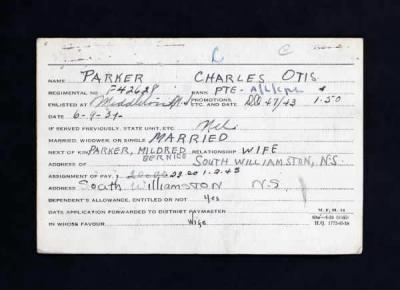 L C
NAME PARKER CHARLES OTIS
REGIMENTAL NO. F42629 RANK PTE- A/L/CPL
ENLISTED AT Middleton N.S. PROMOTIONS, ETC. AND DATE DO 47/43 1.50
DATE 6-9-39-
IF SERVED PREVIOUSLY, STATE UNIT, ETC Nil
MARRIED, WIDOWER, OR SINGLE MARRIED
NEXT OF KIN PARKER, MILDRED BERNICE RELATIONSHIP WIFE
ADDRESS OF SOUTH WILLIAMSTON, N.S.
ASSIGNMENT OF PAY, $ 20.00 23.00 1.2.43
ADDRESS South Williamston N.S.
DEPENDENT'S ALLOWANCE, ENTITLED OR NOT Yes
DATE APPLICATION FORWARDED TO DISTRICT PAYMASTER
IN WHOSE FAVOUR Wife